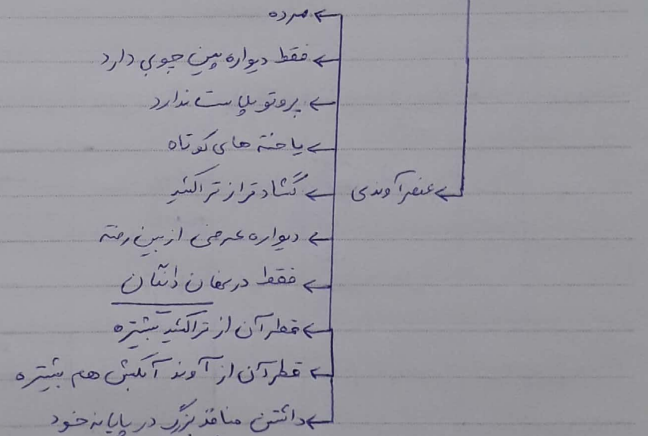 ← مرده
← فقط دیواره پسین چوبی دارد
← پروتوپلاست ندارد
← یاخته های کوتاه
← عنصر آوندی ← گشادتر از تراکئید
← دیواره عرضی از بین رفته
← فقط در نهان دانگان
← قطر آن از تراکئید بیشتره
← قطر آن از آوند آبکش هم بیشتره
← داشتن منافذ بزرگ در پایانه خود